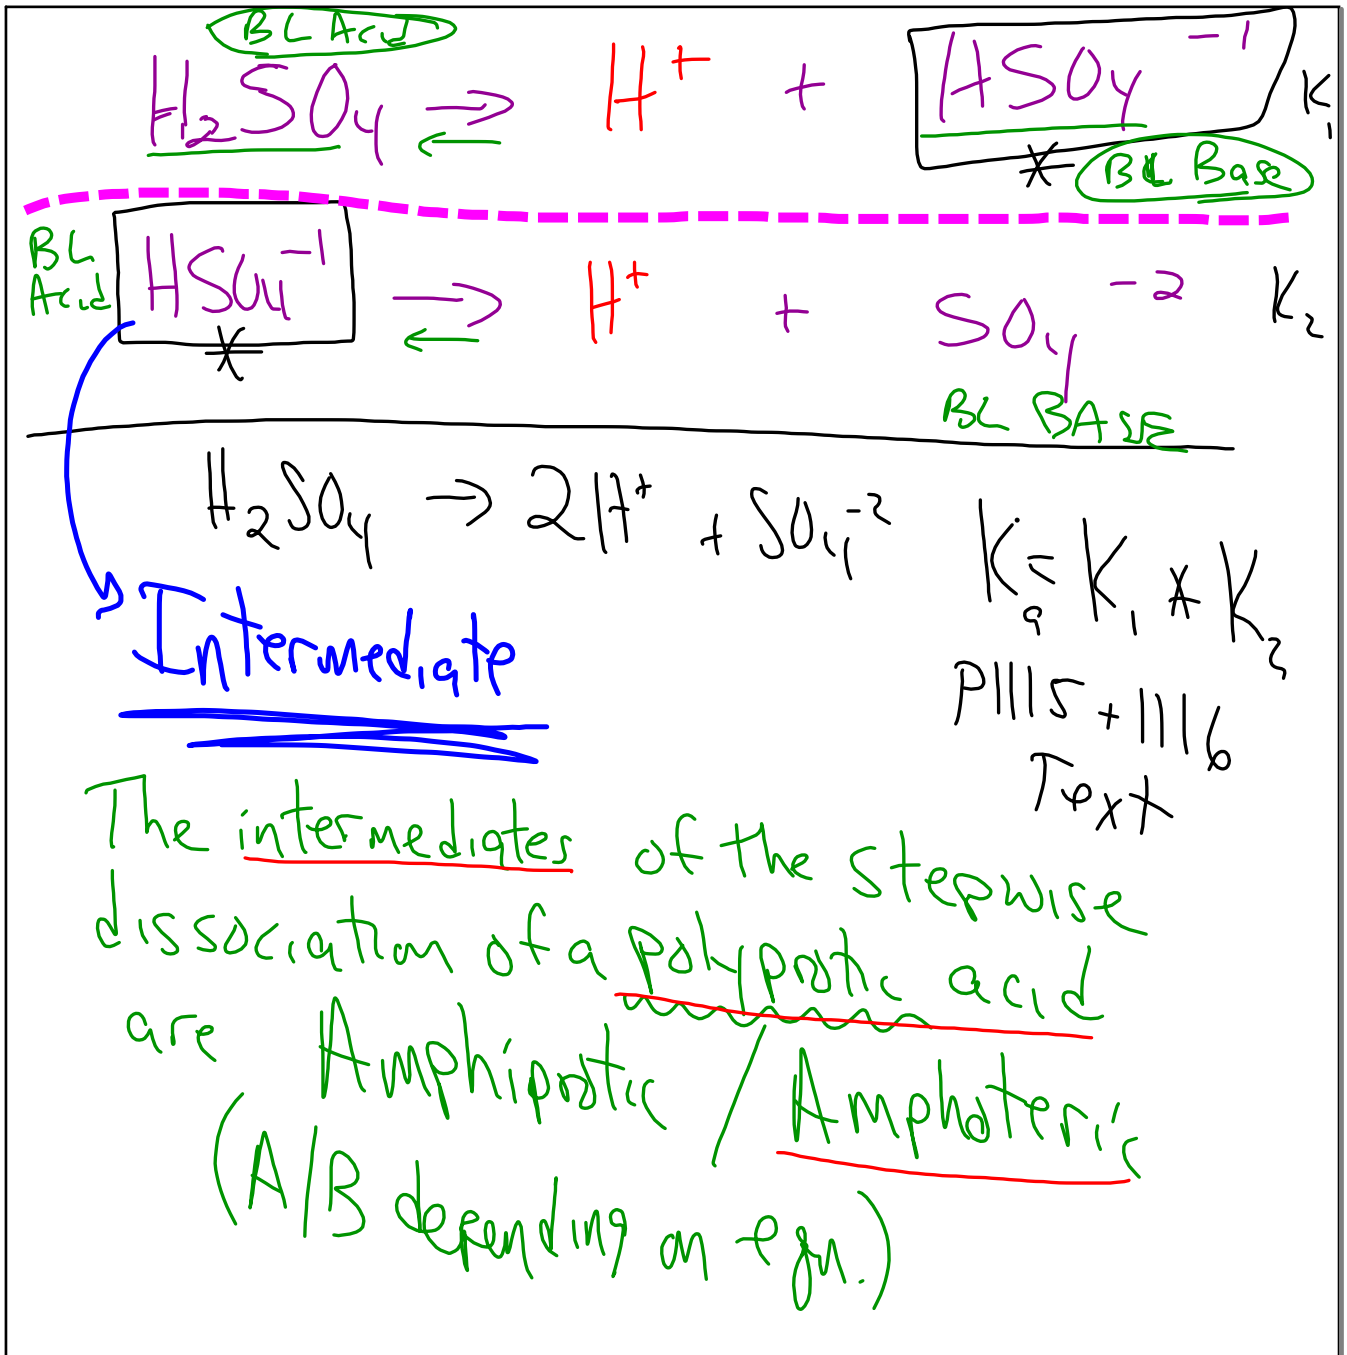 BL Acid
H₂SO₄ ⇌ H⁺ + HSO₄⁻¹ K₁
* BL Base
BL Acid HSO₄⁻¹ ⇌ H⁺ + SO₄⁻² K₂
* BL BASE
H₂SO₄ → 2H⁺ + SO₄⁻² Kₐ = K₁ * K₂
Intermediate
P1115 + 1116
Text
The intermediates of the stepwise
dissociation of a polyprotic acid
are Amphiprotic / Amphoteric
(A/B depending on eqn.)